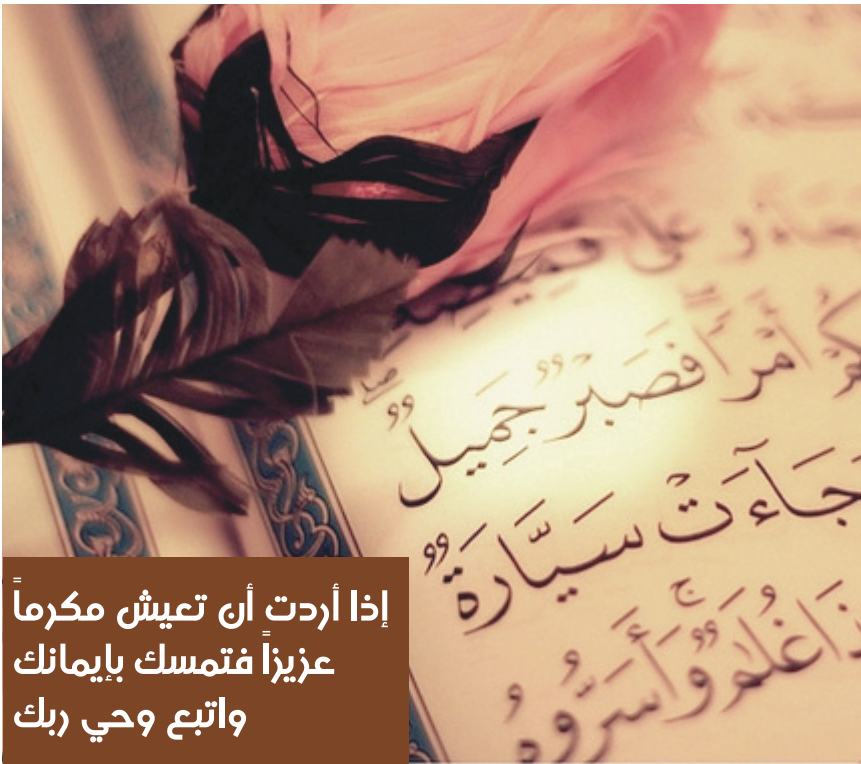 على
أَمْرًا فَصَبْرٌ جَمِيلٌ
جَآءَتْ سَيَّارَةٌ
غُلَٰمٌ ۚ وَأَسَرُّوهُ
إذا أردت أن تعيش مكرماً
عزيزاً فتمسك بإيمانك
واتبع وحي ربك